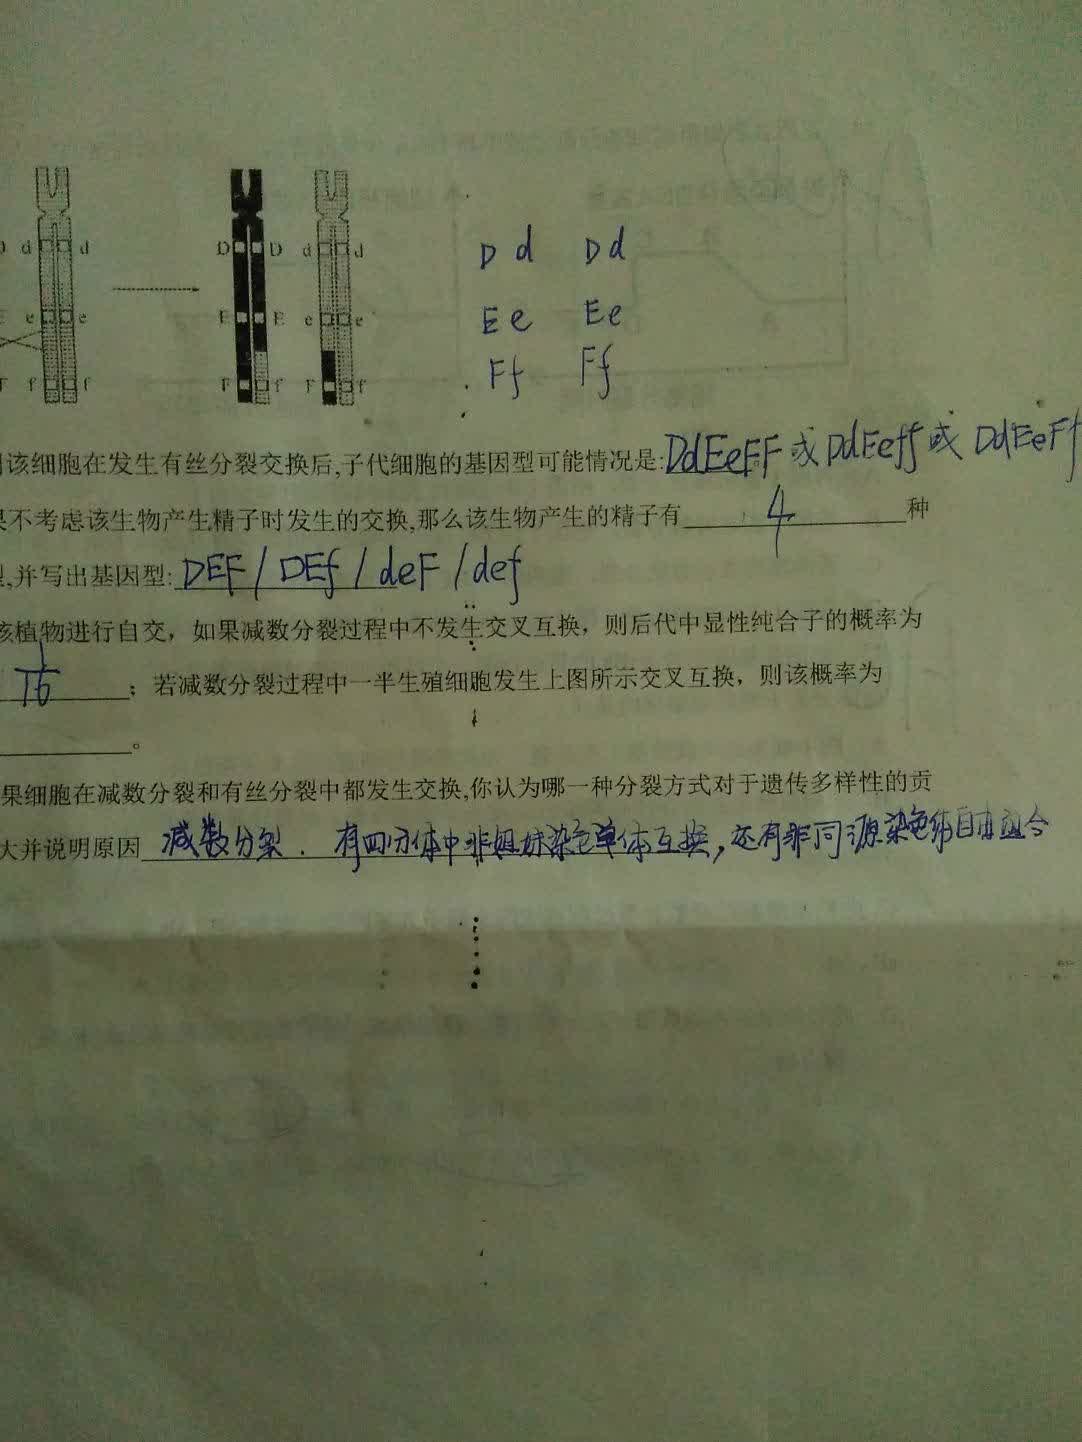 D d d D D d d D d D d
E e e E E e e E e E e
F f f F f F f F f F f
该细胞在发生有丝分裂交换后,子代细胞的基因型可能情况是: DdEeFF 或 DdEeff 或 DdEeFf
果不考虑该生物产生精子时发生的交换,那么该生物产生的精子有 4 种
,并写出基因型: DEF / DEf / deF / def
该植物进行自交，如果减数分裂过程中不发生交叉互换，则后代中显性纯合子的概率为
1/16 ；若减数分裂过程中一半生殖细胞发生上图所示交叉互换，则该概率为
。
果细胞在减数分裂和有丝分裂中都发生交换,你认为哪一种分裂方式对于遗传多样性的贡
大并说明原因 减数分裂. 有四分体中非姐妹染色单体互换, 还有非同源染色体自由组合